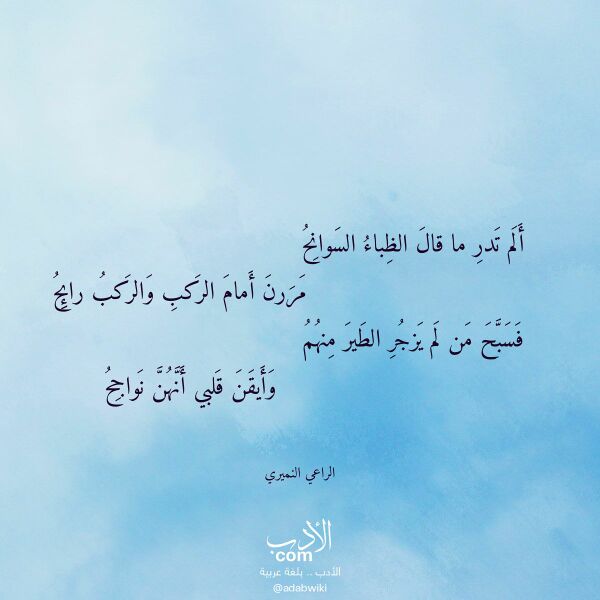 أَلَم تَدرِ ما قالَ الظِباءُ السَوانِحُ
مَرَرنَ أَمامَ الرَكبِ وَالرَكبُ رائِحُ
فَسَبَّحَ مَن لَم يَزجُرِ الطَيرَ مِنهُمُ
وَأَيقَنَ قَلبي أَنَّهُنَّ نَواجِحُ
الراعي النميري
الأدب
com
الأدب .. بلغة عربية
@adabwiki